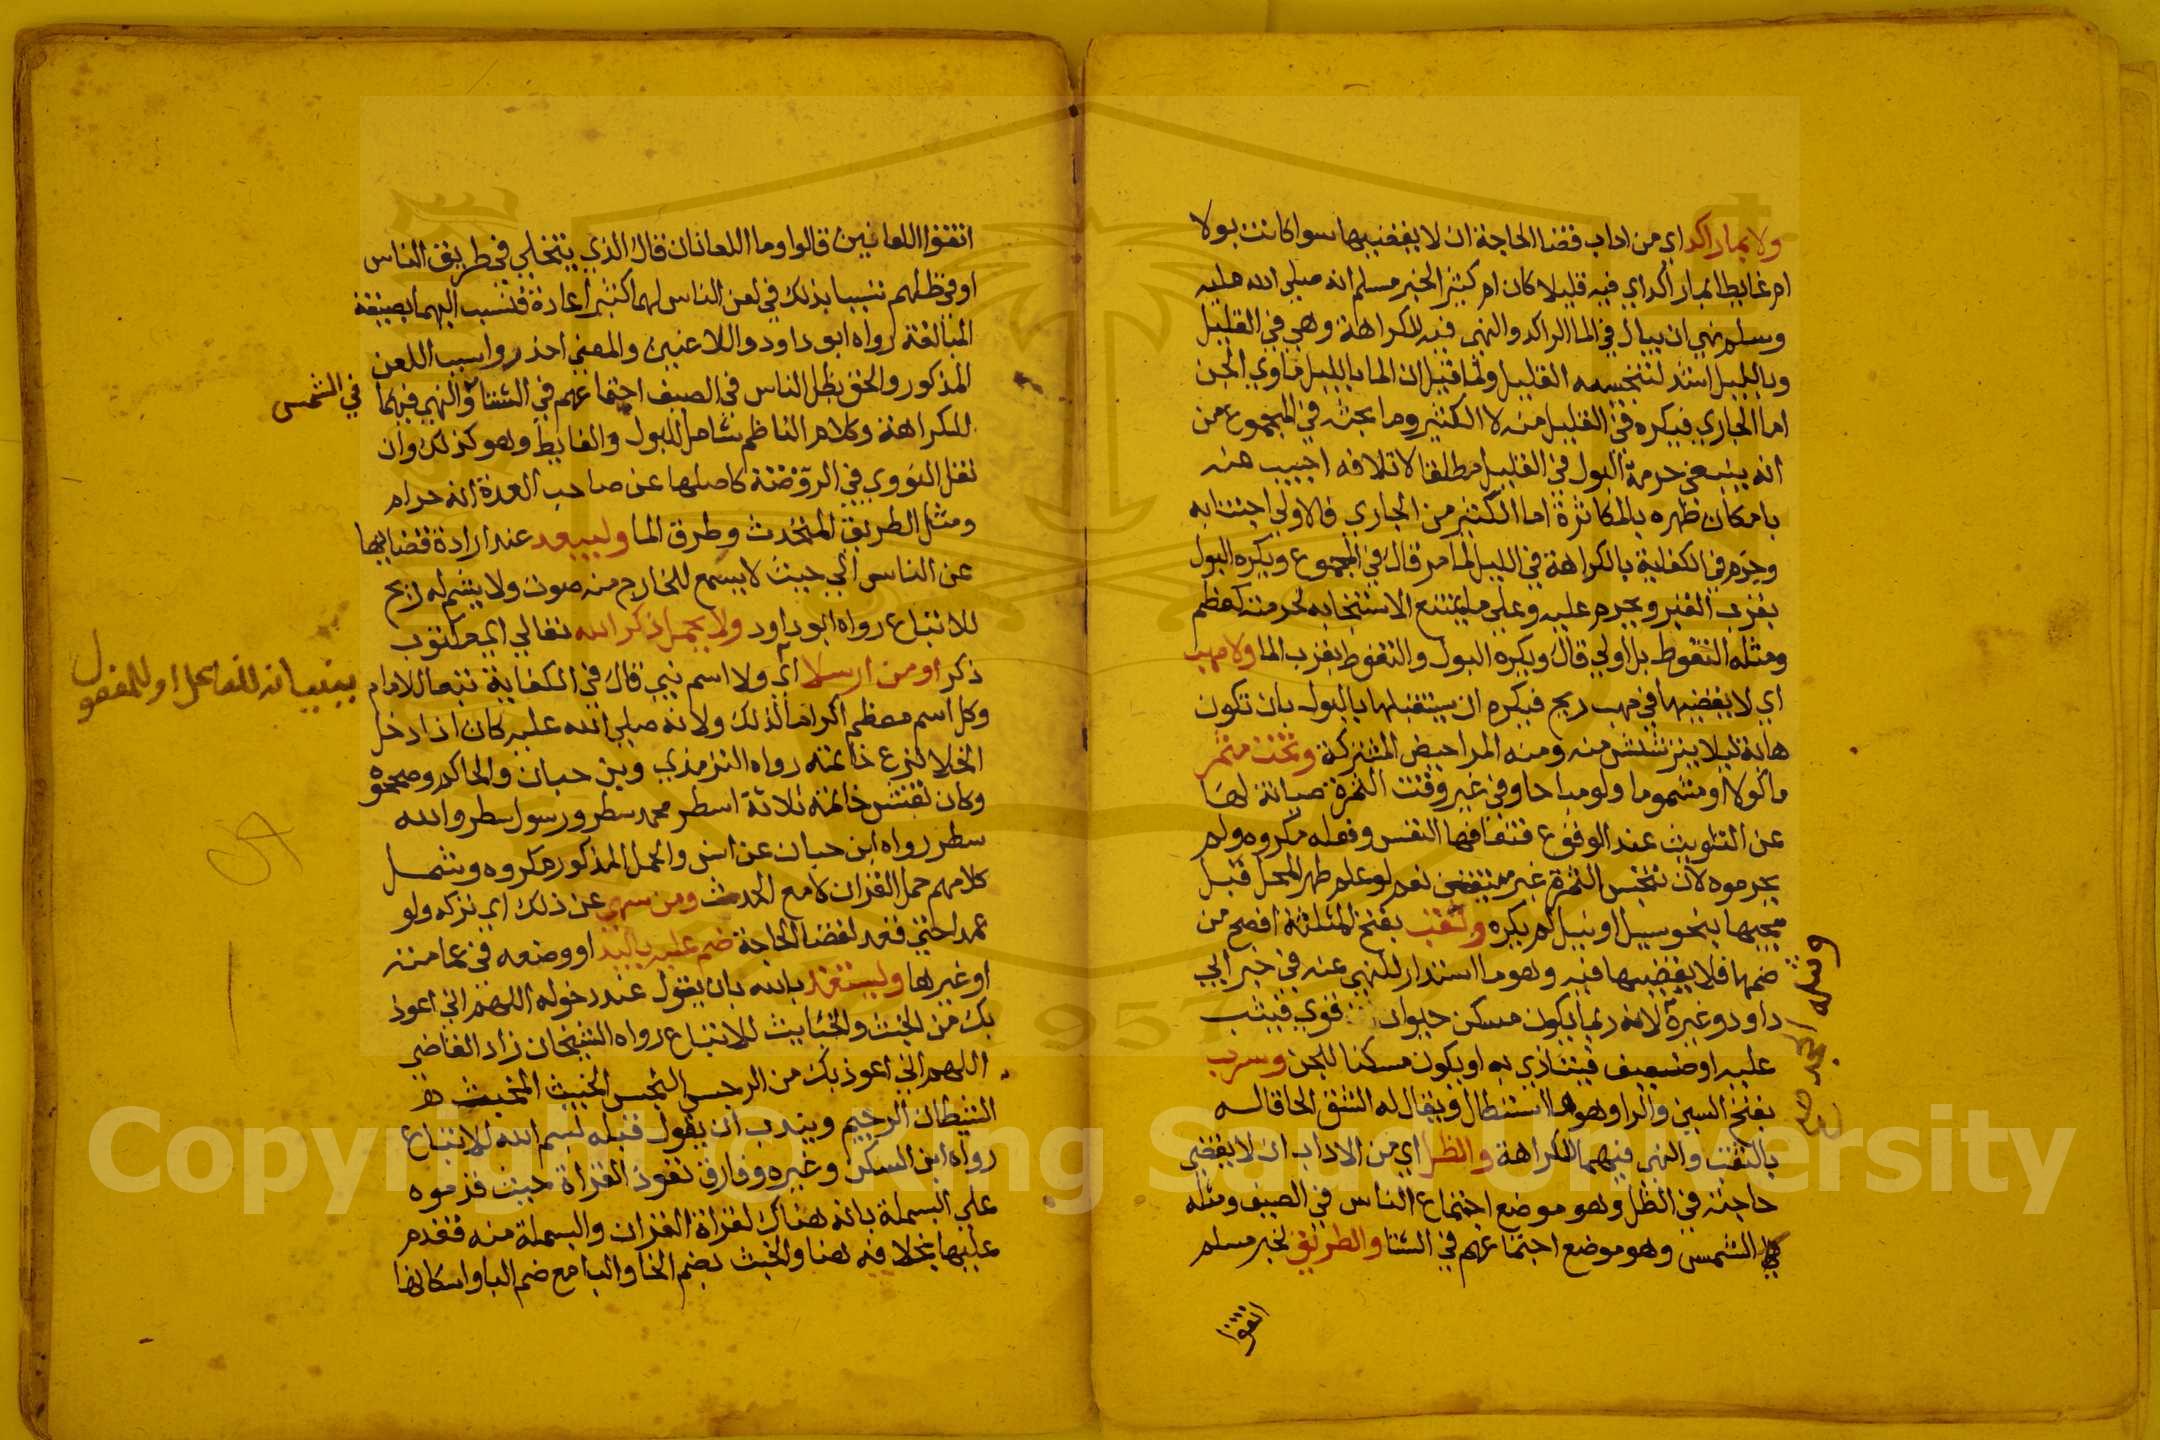 ولا بماراكد اي من اداب قضا الحاجة ان لا يقضيها سوا كانت بولا
ام غايطا بمار اكد اي فيه قليلا كان ام كثيرا لخبر مسلم انه صلي الله عليه
وسلم نهي ان يبال في الما الراكد والنهي فيه للكراهة وهي في القليل
وبالليل اشد لتنجيسه القليل ولما قيل ان الما بالليل ماوي الجن
اما الجاري فيكره في القليل منه لا الكثير وما بحثه في المجموع من
انه ينبغي حرمة البول في القليل مطلقا لاتلافه اجيب عنه
بامكان طهره بالمكاثرة اما الكثير من الجاري فالاولي اجتنابه
وجزم في الكفاية بالكراهة في الليل لما مر قال في المجموع ويكره البول
بقرب القبر ويحرم عليه وعلي ما يمتنع الاستنجا به لحرمته كعظم
ومثله التغوط بل اولي قال ويكره البول والتغوط بقرب الما ولا مهب
اي لا يقضيها في مهب ريح فيكره ان يستقبلها بالبول بان تكون
هابة ليلا يترشش منه ومنه المراحيض المشتركة وتحت مثمر
ماكولا او مشموما ولو مباحا وفي غير وقت الثمرة صيانة لها
عن التلويث عند الوقوع فتعافها النفس وفعله مكروه ولم
يحرموه لان تنجس الثمرة غير متيقن نعم لو علم طهر المحل قبل
مجيها بنحو سيل او نيل لم يكره وثقب بفتح المثلثة افصح من
ضمها فلا يقضيها فيه وهو ما استدار للنهي عنه في خبر ابي
داود وغيره لانه ربما يكون مسكن حيوان قوي فيثب
عليه او ضعيف فيتاذي به او يكون مسكنا للجن وسرب
بفتح السين والرا وهو ما استطال ويقال له الشق الحاقا له
بالثقب والنهي فيهما للكراهة والظل اي من الاداب ان لا يقضي
حاجته في الظل وهو موضع اجتماع الناس في الصيف ومثله
في الشمس وهو موضع اجتماعهم في الشتا والطريق لخبر مسلم
اتقوا
اتقوا اللعانين قالوا وما اللعانان قال الذي يتخلي في طريق الناس
او في ظلهم تسببا بذلك في لعن الناس لهما كثيرا عادة فنسب اليهما بصيغة
المبالغة رواه ابو داود واللاعنين والمعني احذروا سبب اللعن
المذكور والحق بظل الناس في الصيف اجتماعهم في الشتا والنهي فيهما
في الشمس
للكراهة وكلام الناظم شامل للبول والغايط وهو كذلك وان
نقل النووي في الروضة كاصلها عن صاحب العدة انه حرام
ومثل الطريق المتحدث وطرق الما وليبعد عند ارادة قضايها
عن الناس الي حيث لا يسمع للخارج منه صوت ولا يشم له ريح
للاتباع رواه ابو داود ولا يحمل ذكر الله تعالي اي مكتوب
ذكر او من ارسلا اي ولا اسم نبي قال في الكفاية تبعا للامام
بينيانه للفاعل او للمفعول
وكل اسم معظم اكراما لذلك ولانه صلي الله عليه كان اذا دخل
الخلا نزع خاتمه رواه الترمذي وبن حبان والحاكم وصححوه
وكان نقش خاتمه ثلاثة اسطر محمد سطر ورسول سطر والله
سطر رواه ابن حبان عن انس والحمل المذكور مكروه وشمل
كلامهم حمل القران لا مع الحدث ومن سهي عن ذلك اي تركه ولو
عمدا حتي قعد لقضا الحاجة ضم عليه باليد او وضعه في عمامته
او غيرها وليستعذ بالله بان يقول عند دخوله اللهم اني اعوذ
بك من الخبث والخبايث للاتباع رواه الشيخان زاد القاضي
اللهم اني اعوذ بك من الرجس النجس الخبيث المخبث
الشيطان الرجيم ويندب ان يقول قبله بسم الله للاتباع
رواه ابن السكن وغيره وفارق تعوذ القراة حيث قدموه
علي البسملة بانه هناك لقراة القران والبسملة منه فقدم
عليها بخلافه هنا والخبث بضم الخا والبا مع ضم البا واسكانها
Copyright © King Saud University
1957